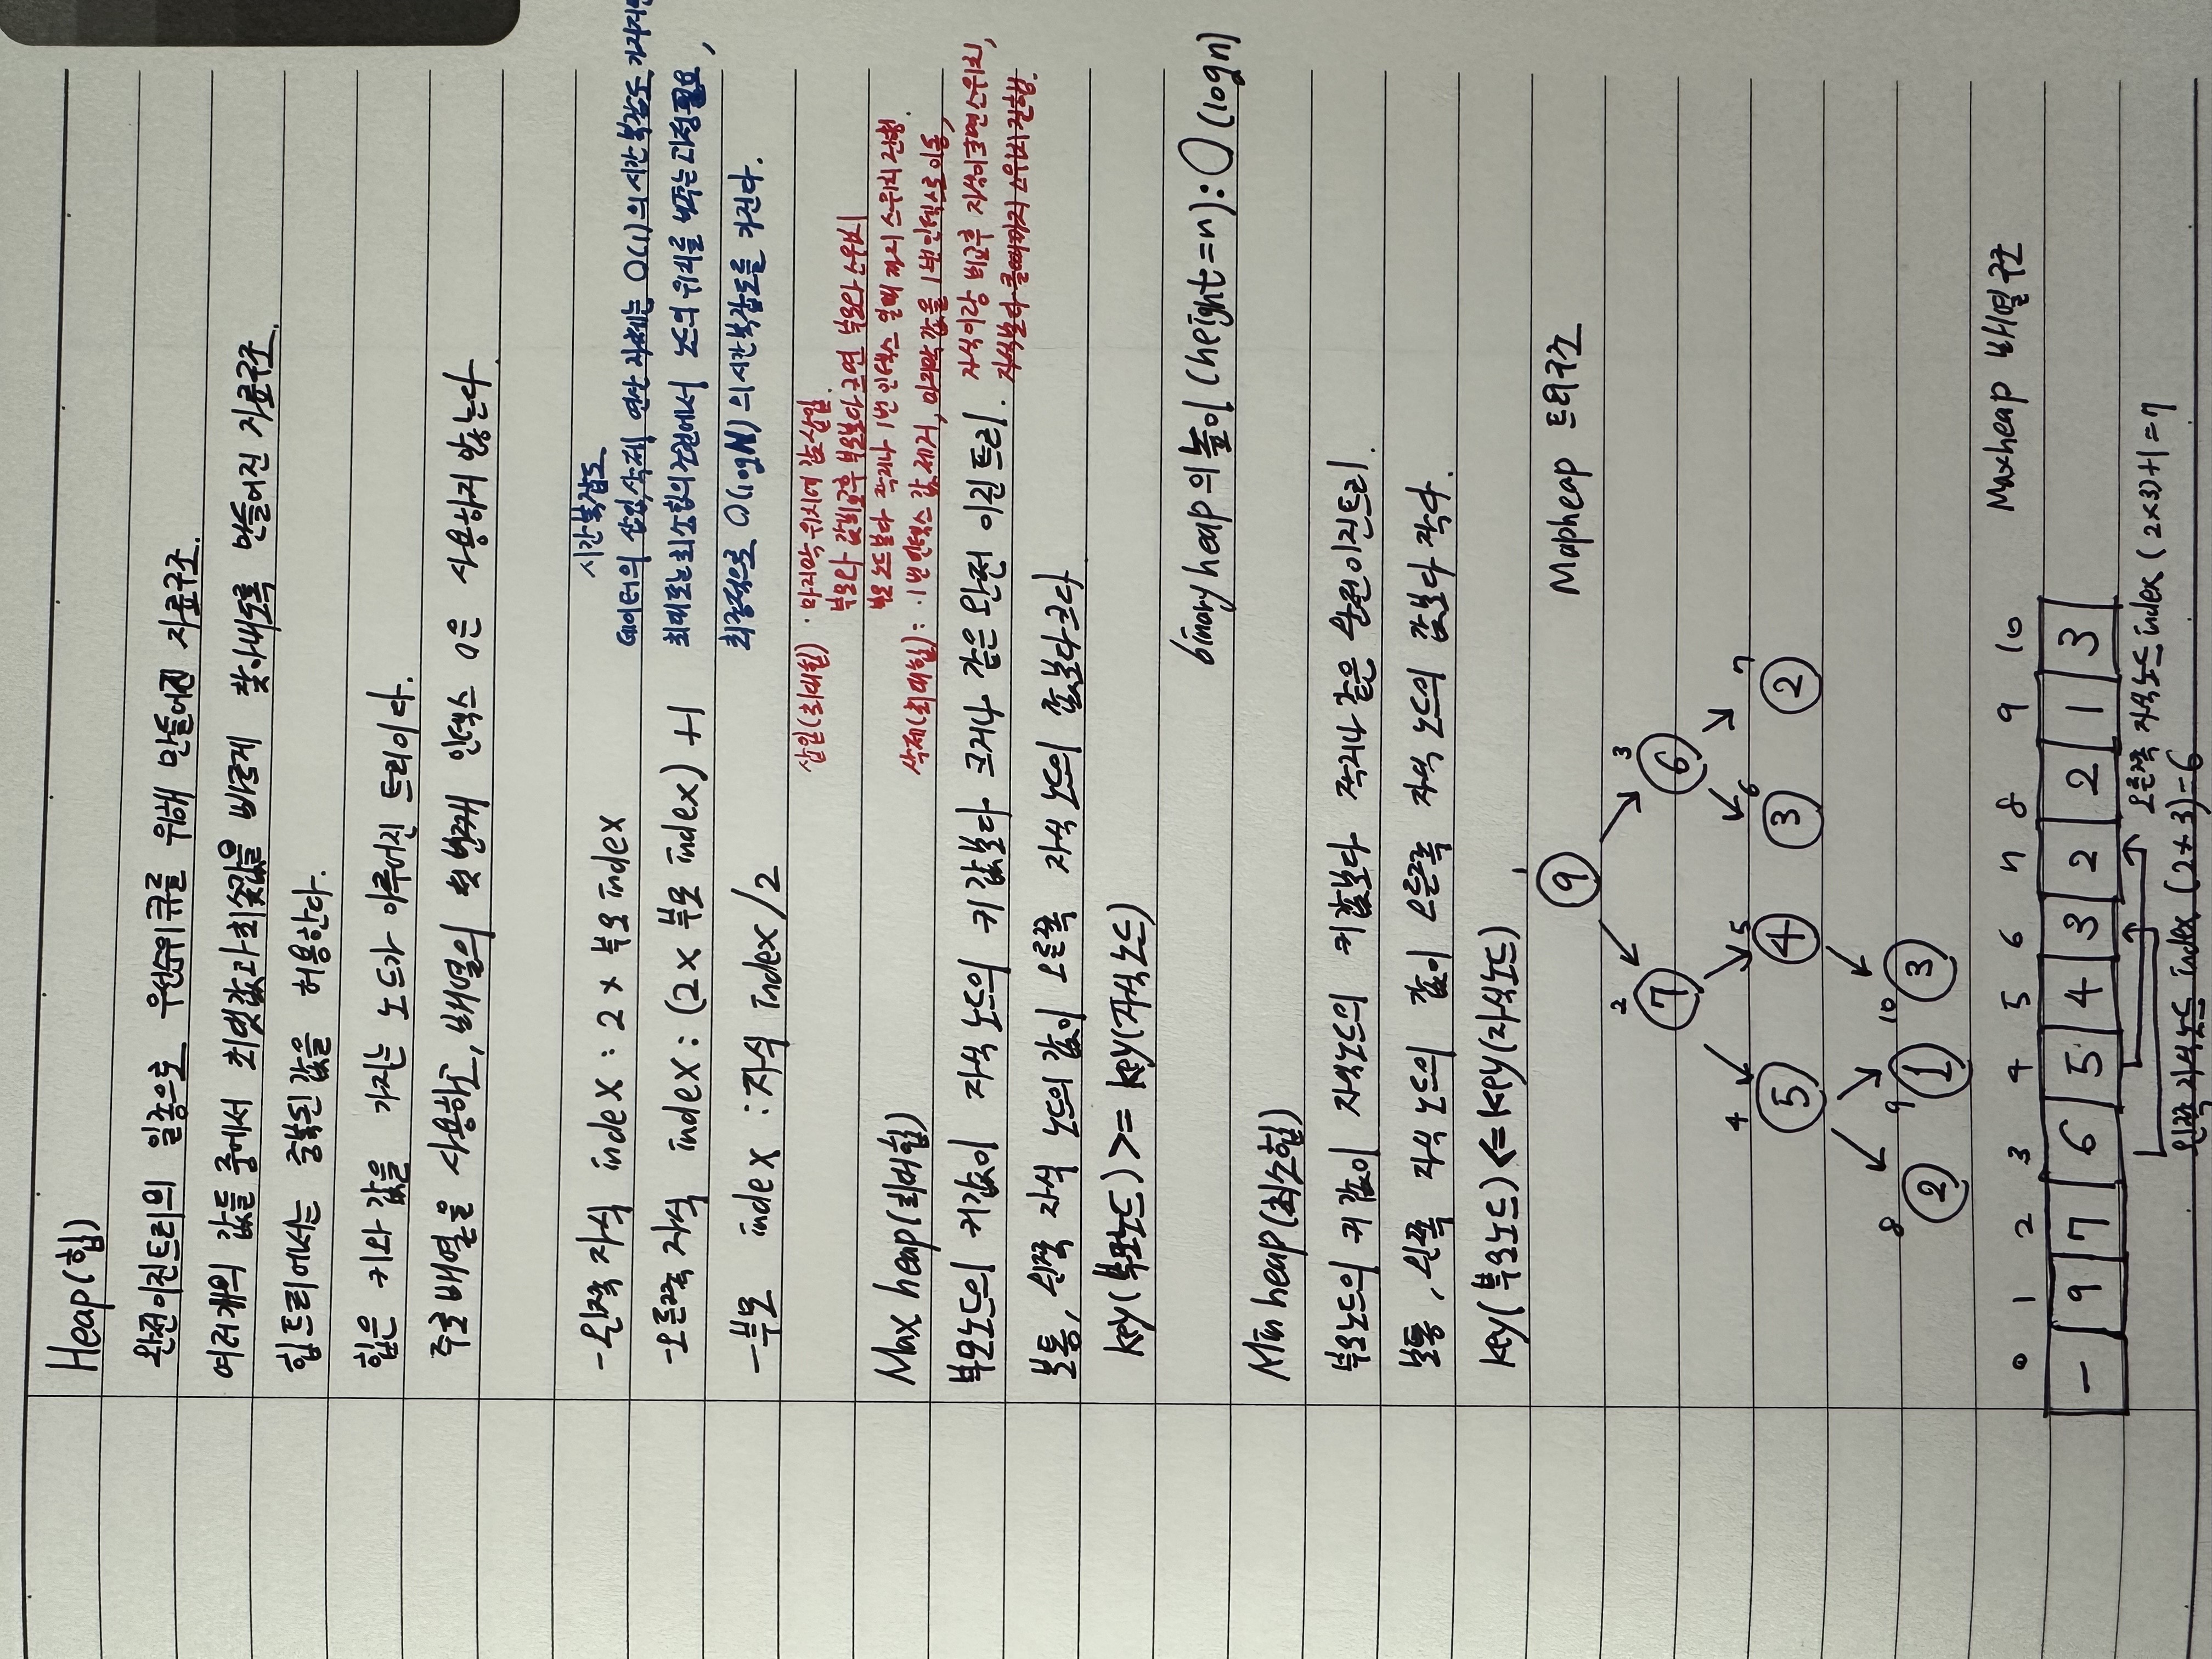 Heap(힙)
완전이진트리의 일종으로 우선순위큐를 위해 만들어진 자료구조.
여러개의 값들 중에서 최댓값과최솟값을 빠르게 찾아내도록 만들어진 자료구조.
힙트리에서는 중복된값을 허용한다.
힙은 키와 값을 가지는 노드가 이루어진 트리이다.
주로배열을 사용하고, 배열의 첫번째 인덱스 0은 사용하지 않는다.
-왼쪽 자식 index : 2 × 부모 index
-오른쪽 자식 index : (2× 부모 index) +1
-부모 index : 자식 index/2
시간복잡도
데이터의 삽입,삭제 연산 자체는 O(1)의 시간복잡도 가지지만
최대또는최소힙의조건에서 노드의 위치를 바꾸는 과정필요,
최종적으로 O(logN)의시간복잡도를 가진다.
삽입(최대힙) · 마지막 위치에 값 삽입.
부모와 값비교후 부모보다 크면 부모와 스위치
부모노드보다 작거나 1번 인덱스 일때 까지 스위치 진행.
삭제(최대힙): ·1번인덱스 값 제거, 마지막 값을 1번인덱스로 이동,
자식이랑 비교후 자식이크면스위치,
자식보다 클때까지 스위치 진행.
Max heap(최대힙)
부모노드의 키값이 자식 노드의 키 값보다 크거나 같은 완전 이진 트리.
보통, 왼쪽 자식 노드의 값이 오른쪽 자식 노드의 값보다크다
key(부모노드) >= key(자식노드)
binary heap의 높이 (height=n): O(logn)
Min heap(최소힙)
부모노드의 키 값이 자식노드의 키값보다 작거나 같은 완전이진트리.
보통, 왼쪽 자식 노드의 값이 오른쪽 자식 노드의 값보다 작다.
key(부모노드) <= key(자식노드)
Mapheap 트리구조
1
9
2 3
7 6
4 5 6 7
5 4 3 2
8 9 10
2 1 3
Maxheap 배열구조
0 1 2 3 4 5 6 7 8 9 10
- 9 7 6 5 4 3 2 2 1 3
오른쪽 자식노드 index (2×3)+1=7
왼쪽 자식노드 index (2×3)=6